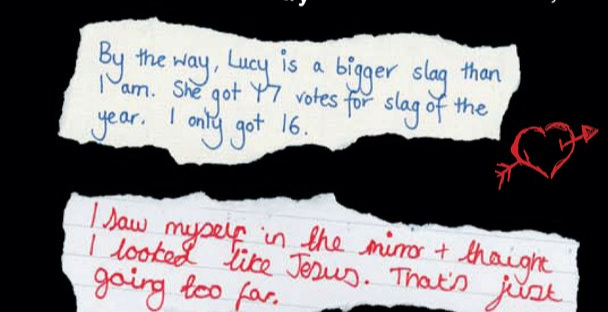 By the way, Lucy is a bigger slag than
I am. She got 17 votes for slag of the
year. I only got 16.
I saw myself in the mirro + thaight
I looked like Jesus. That's just
going too far.